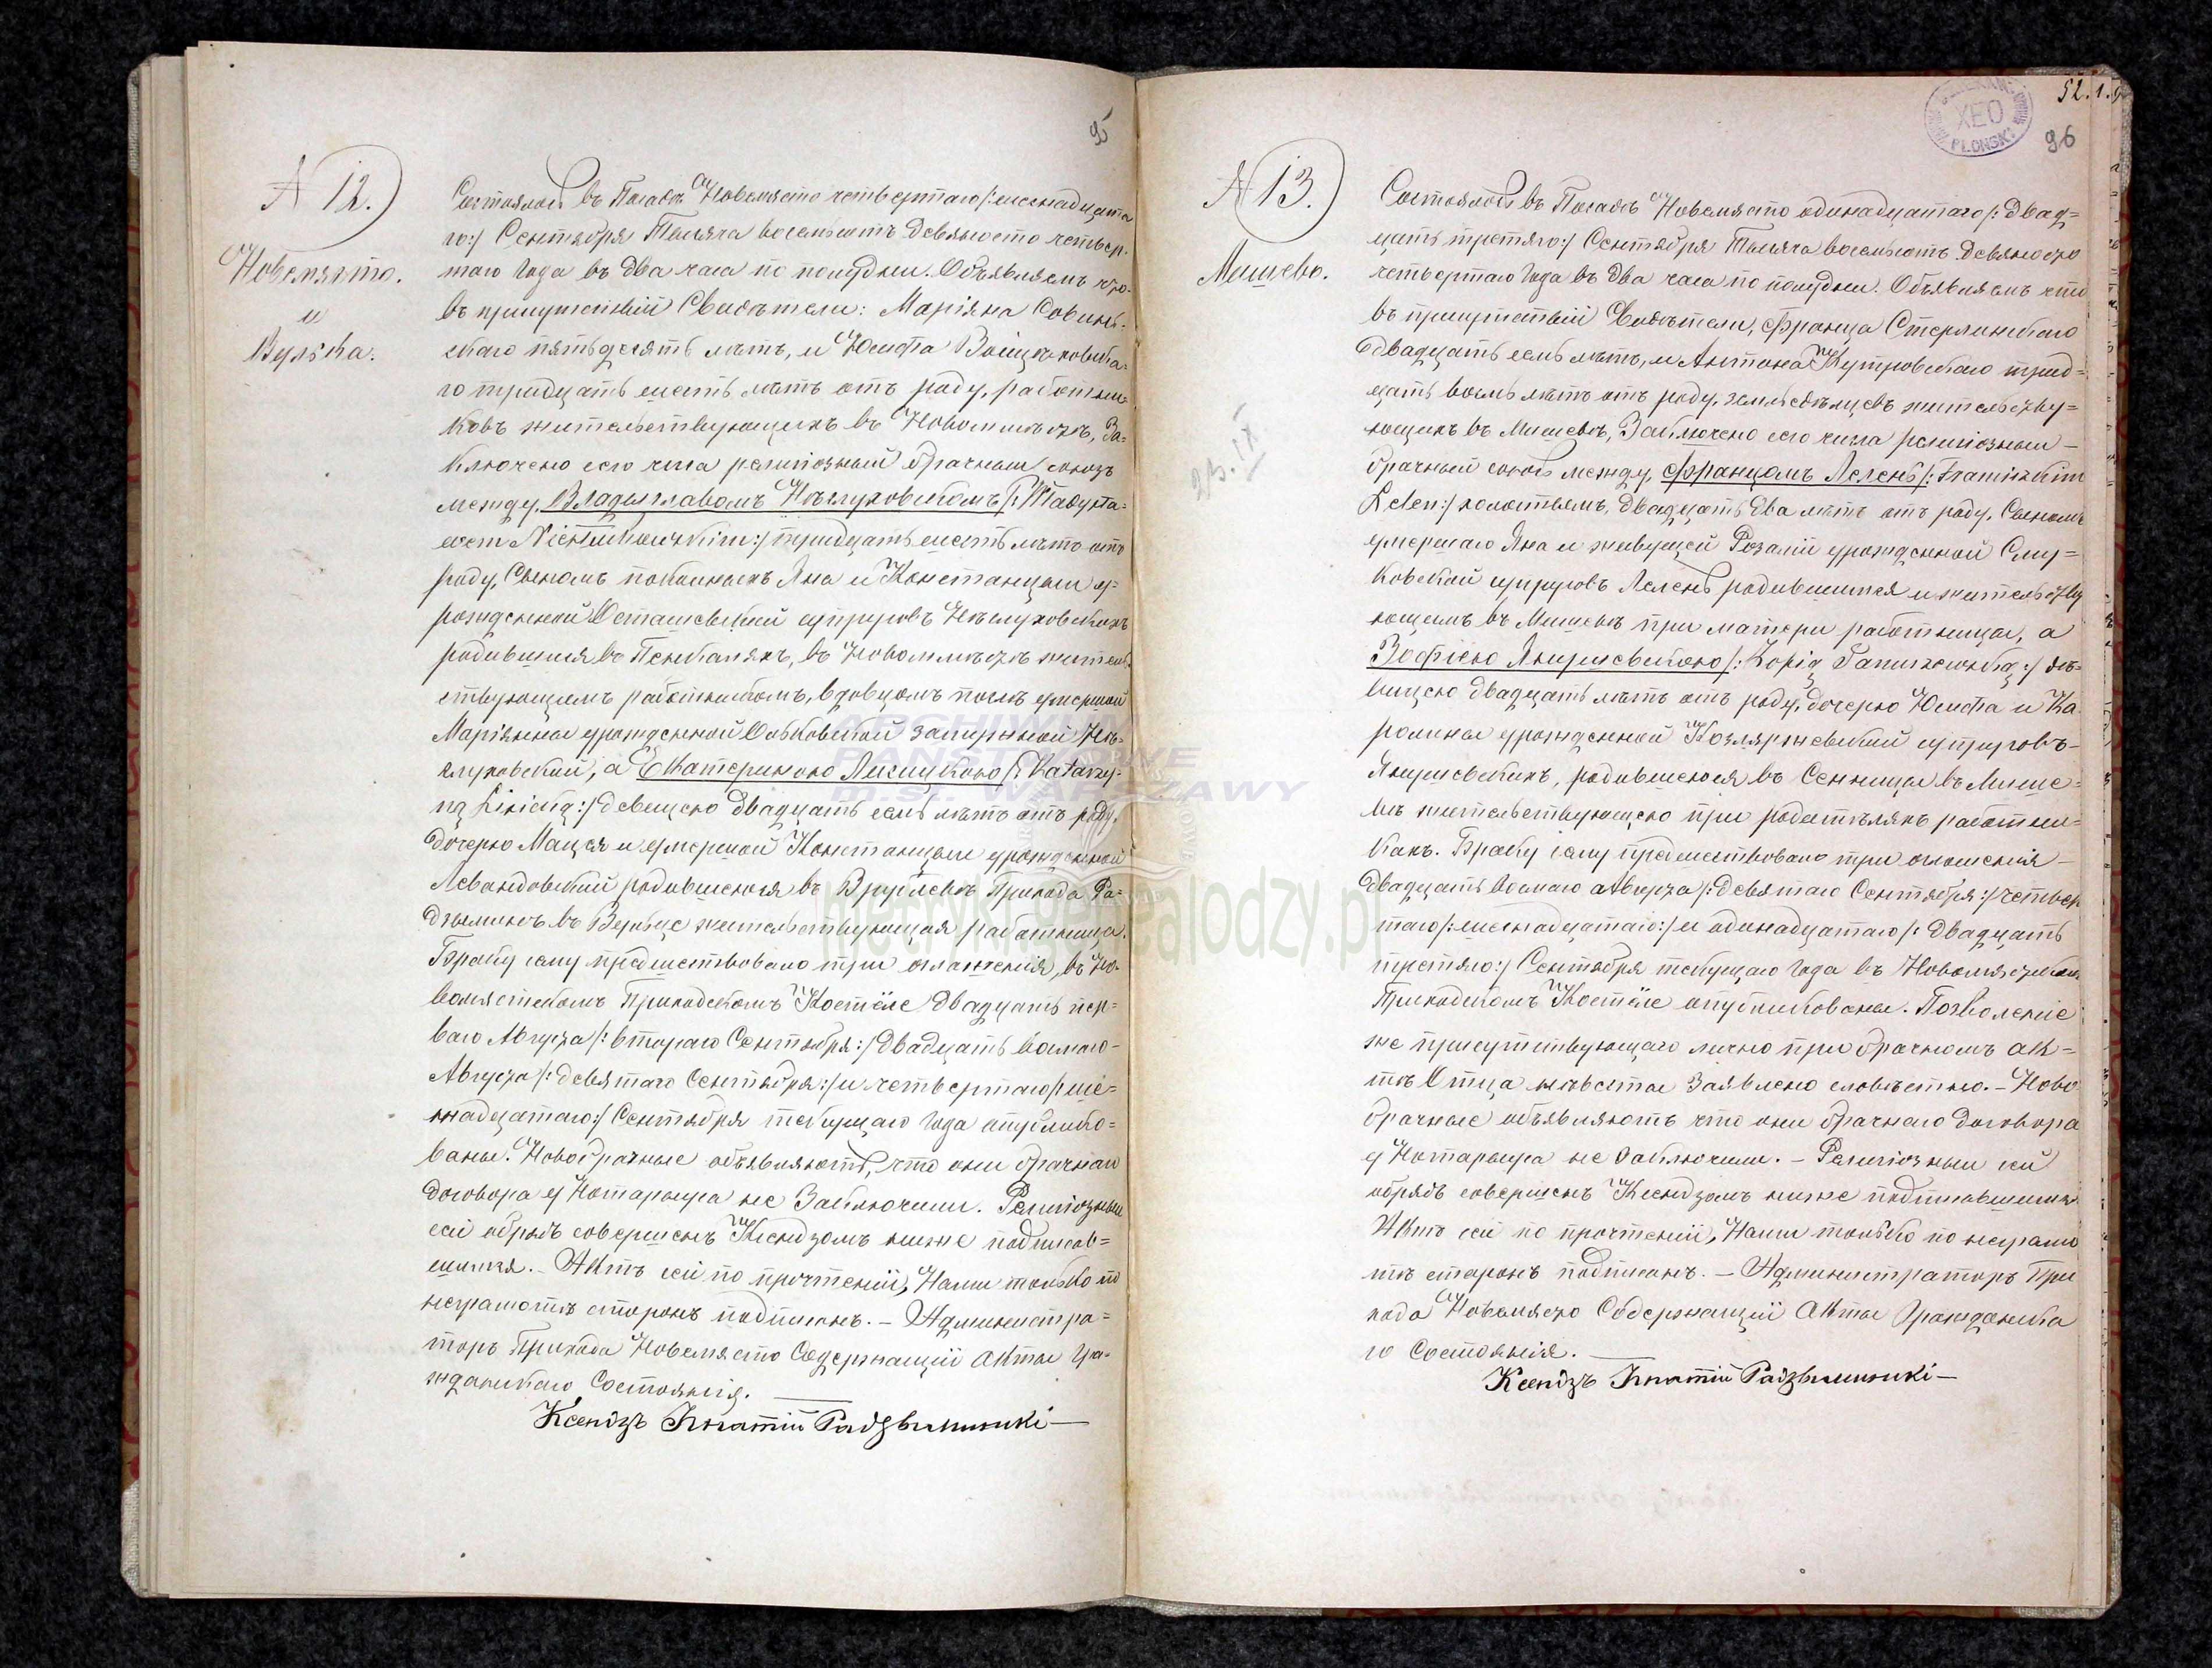 95
№ 12.
Новемясто.
и
Вулька.
Состоялось въ Посадѣ Новемясто четвертаго /:шестнадцата
го:/ Сентября Тысяча восемьсотъ девяносто четвер-
таго Года въ два часа по полудни. Объявляемъ что
въ присутствіи Свидѣтелей: Маріяна Совинь-
скаго пятьдесятъ лѣтъ, и Юсифа
го тридцать шесть лѣтъ отъ роду, работни-
ковъ жительствующихъ въ Новомястѣ, За-
ключено сего числа религіозный брачный союзъ
между, Владыславомъ Нѣслуховскомъ /:Władysła-
wem тридцать шесть лѣтъ отъ
роду, Сыномъ покойныхъ Яна и Констанцыи у-
рожденной Осташевской супруговъ Нѣслуховскихъ
родившимся въ въ Новомястѣ житель-
ствующимъ работникомъ, вдовцомъ послѣ умершей
Маріянны урожденной замужной Нѣ-
слуховской, а Екатериною Лисицкою /:Katarzy-
ną Lisicką:/ девицею двадцать семь лѣтъ отъ роду,
дочерью Мацея и умершей Констанцыи урожденной
Левандовской родившеюся въ Врублевѣ Прихода Ра-
дзыминъ въ жительствующая работница.
Браку сему предшествовало три оглашенія, въ Но-
вомястскомъ Приходскомъ Костёле двадцать пер-
ваго Августа /:втораго Сентября:/ двадцать восмаго
Августа /:девятаго Сентября:/ и четвертаго /:шес-
тнадцатаго:/ Сентября текущаго Года опублико-
ваны. Новобрачные объявляютъ, что они брачнаго
договора у Нотарыуса не Заключили. Религіозный
сей обрядъ совершенъ Ксендзомъ ниже подписав-
шимся. — Актъ сей по прочтеніи, Нами только по
неграмотѣ сторонъ подписанъ. — Администра-
торъ Прихода Новемясто Содержащій Акты Гра-
жданскаго Состоянія.
Ксендзъ Игнатій Радзвиминскі
52.1.
96
XEO
PŁOŃSK
№ 13.
Мишево.
23.IX
Состоялось въ Посадѣ Новемясто одинадцатаго /:двад-
цать третяго:/ Сентября Тысяча восемьсотъ девяносто
четвертаго Года въ два часа по полудни. Объявляемъ что
въ присутствіи Свидѣтелей, Францa Стерлинскаго
двадцать семь лѣтъ, и Антона Кутровскаго трид-
цать восмь лѣтъ отъ роду, земледѣльцевъ жительству-
ющихъ въ Мишевѣ, Заключено сего числа религіозный
брачный союзъ между, Францомъ Леленъ /:Franciszkim
Lelen:/ холостымъ, двадцать два лѣтъ отъ роду, Сыномъ
умершаго Яна и живущей Розаліи урожденной Слу-
ковской супруговъ Леленъ родившимся и жительству
ющимъ въ Мишевѣ при матери работницы, а
Зофіею Янушевскою /:Zofią Januszewską:/ дѣ-
вицею двадцать лѣтъ отъ роду, дочерью Юсифа и Ка-
ролины урожденной Козляржевской супруговъ
Янушевскихъ, родившеюся въ Сенницы въ Мише-
вѣ жительствующею при родителяхъ работни-
кахъ. Браку сему предшествовало три оглашенія
двадцать восмаго Августа /:девятаго Сентября:/ четвер
таго /:шестнадцатаго:/ и одинадцатаго /:двадцать
третяго:/ Сентября текущаго Года въ Новомястскомъ
Приходскомъ Костёле опубликованы. Позволеніе
же присутствующаго лично при брачномъ ак-
тѣ Отца невѣсты Заявлено словѣстно. — Ново
брачные объявляютъ что они брачнаго договора
у Нотарыуса не Заключили. — Религіозный сей
обрядъ совершенъ Ксендзомъ ниже подписавшимся
Актъ сей по прочтеніи, Нами только по неграмо
тѣ сторонъ подписанъ. — Администраторъ При
хода Новемясто Содержащій Акты Гражданска
го Состоянія.
Ксендзъ Игнатій Радзвиминскі
ARCHIWUM
PAŃSTWOWE
M.ST. WARSZAWY
metryki.genealodzy.pl